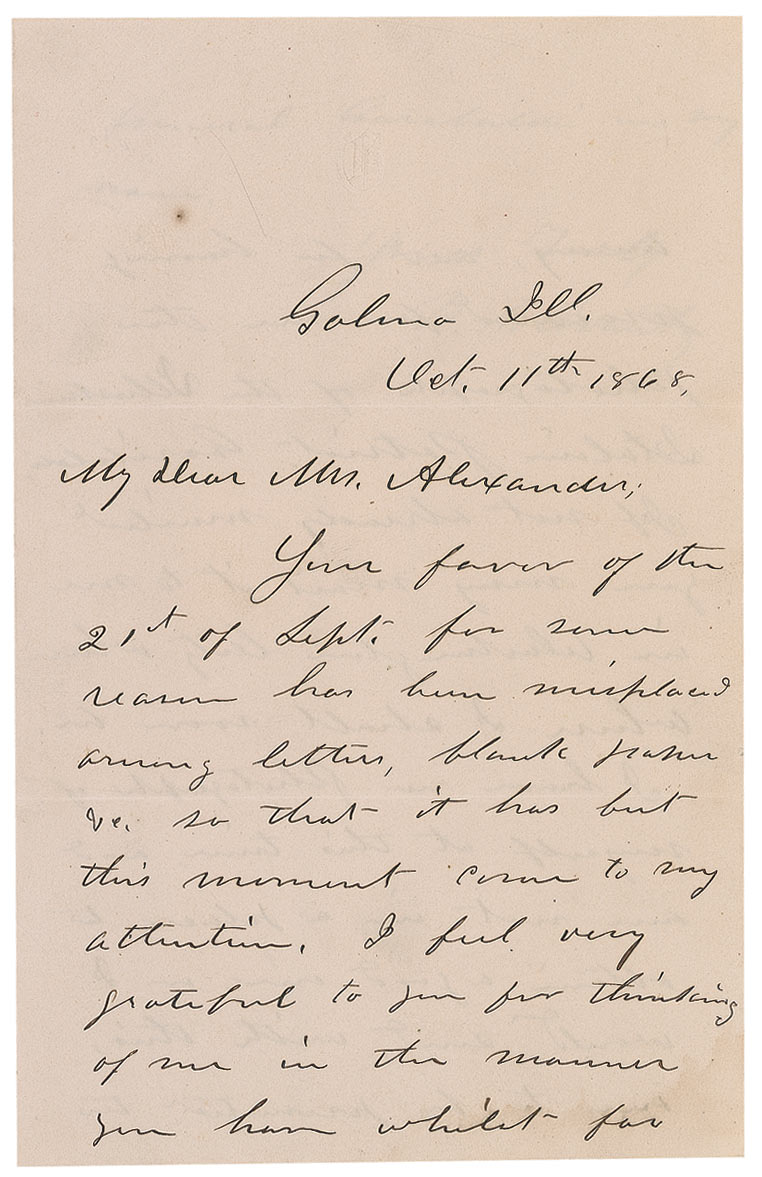 Galena Ill.
Oct. 11th 1868,
My Dear Mrs. Alexander;
Your favor of the
21st of Sept. for some
reason has been misplaced
among letters, blank paper
&c. so that it has but
this moment come to my
attention. I feel very
grateful to you for thinking
of me in the manner
you have whilst far